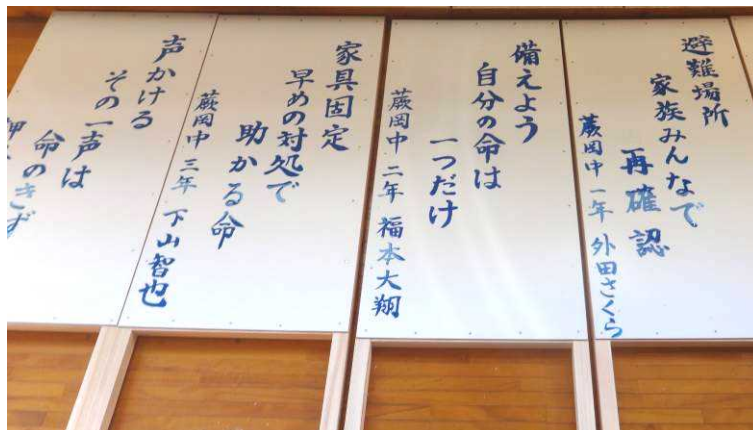 避難場所
家族みんなで
再確認
蕨岡中 一年 外田さくら
備えよう
自分の命は
一つだけ
蕨岡中 二年 福本大翔
家具固定
早めの対処で
助かる命
蕨岡中 三年 下山智也
声かける
その一声は
命のきず